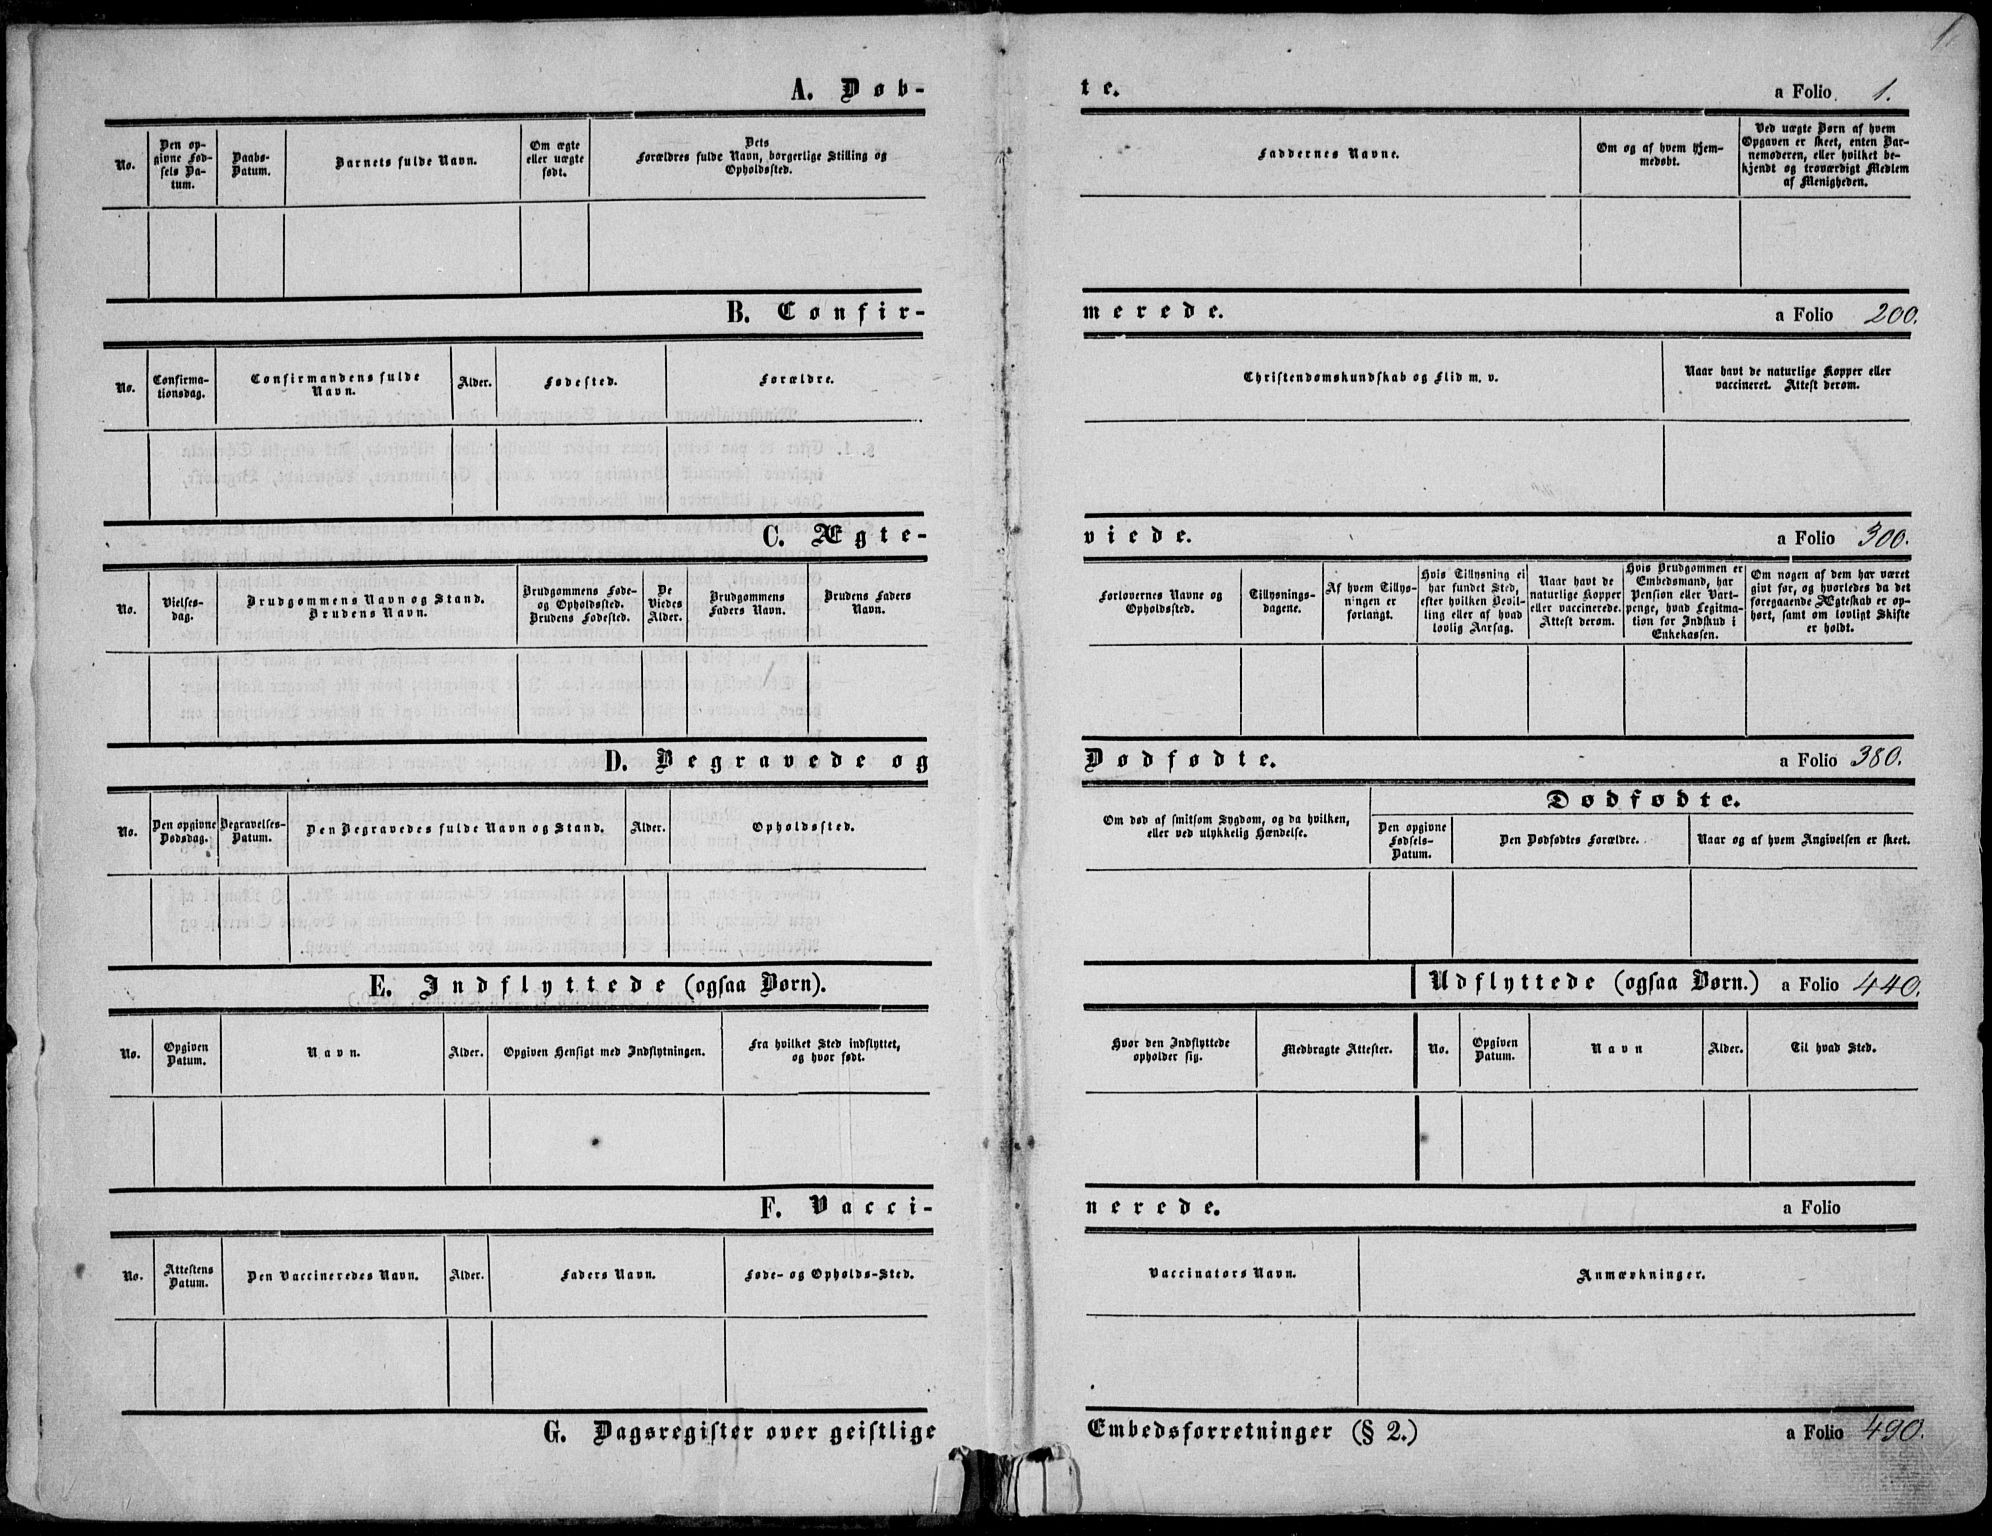 1.
A. Døb-
te.
a Folio 1.
No.
Den op-
givne Fød-
sels Da-
tum.
Daabs-
Datum.
Barnets fulde Navn.
Om ægte
eller uægte
født.
Dets
Forældres fulde Navn, borgerlige Stilling og
Opholdssted.
Faddernes Navne.
Om og af hvem hjem-
medøbt.
Ved uægte Børn af hvem
Opgaven er skeet, enten Bar-
nemoderen, eller hvilket be-
kjendt og troværdigt Medlem
af Menigheden.
B. Confir-
merede.
a Folio 200.
No.
Confirma-
tionsdag.
Confirmandens fulde
Navn.
Alder.
Fødested.
Forældre.
Christendomskundskab og Flid m. v.
Naar havt de naturlige Kopper eller
vaccineret. Attest derom.
C. Ægte-
viede.
a Folio 300.
No.
Vielses-
dag.
Brudgommens Navn og Stand.
Brudens Navn.
Brudgommens Føde-
og Opholdssted.
Brudens Fødested.
De
Viedes
Alder.
Brudgommens
Faders Navn.
Brudens Faders
Navn.
Forlovernes Navne og
Opholdssted.
Tillysnings-
dagene.
Af hvem Tillys-
ningen er
forlangt.
Hvis Tillysning ei
har fundet Sted,
efter hvilken Bevil-
ling eller af hvad
lovlig Aarsag.
Naar havt de
naturlige Kopper
eller vaccinerede.
Attest derom.
Hvis Brudgommen er
Embedsmand, har
Pension eller Vart-
penge, hvad Legitma-
tion for Indskud i
Enkekassen.
Om nogen af dem har været
givt før, og hvorledes da det
foregaaende Ægteskab er op-
hørt, samt om lovligt Skifte
er holdt.
D. Begravede og
Dødfødte.
a Folio 380.
No.
Den opgivne
Dødsdag.
Begravelses-
Datum.
Den Begravedes fulde Navn og Stand.
Alder.
Opholdssted.
Om død af smitsom Sygdom, og da hvilken,
eller ved ulykkelig Hændelse.
Dødfødte.
Den opgivne
Fødsels-
Datum.
Den Dødfødtes Forældre.
Naar og af hvem Angivelsen er skeet.
E. Indflyttede (ogsaa Børn).
Udflyttede (ogsaa Børn.)
a Folio 440.
No.
Opgiven
Datum.
Navn.
Alder.
Opgiven Hensigt med Indflytningen.
Fra hvilket Sted indflyttet,
og hvor født.
Hvor den Indflyttede
opholder sig.
Medbragte Attester.
No.
Opgiven
Datum.
Navn
Alder.
Til hvad Sted.
F. Vacci-
nerede.
a Folio
No.
Attestens
Datum.
Den Vaccineredes Navn.
Alder.
Faders Navn.
Føde- og Opholds-Sted.
Vaccinators Navn.
Anmærkninger.
G. Dagsregister over geistlige
Embedsforretninger (§ 2.)
a Folio 490.